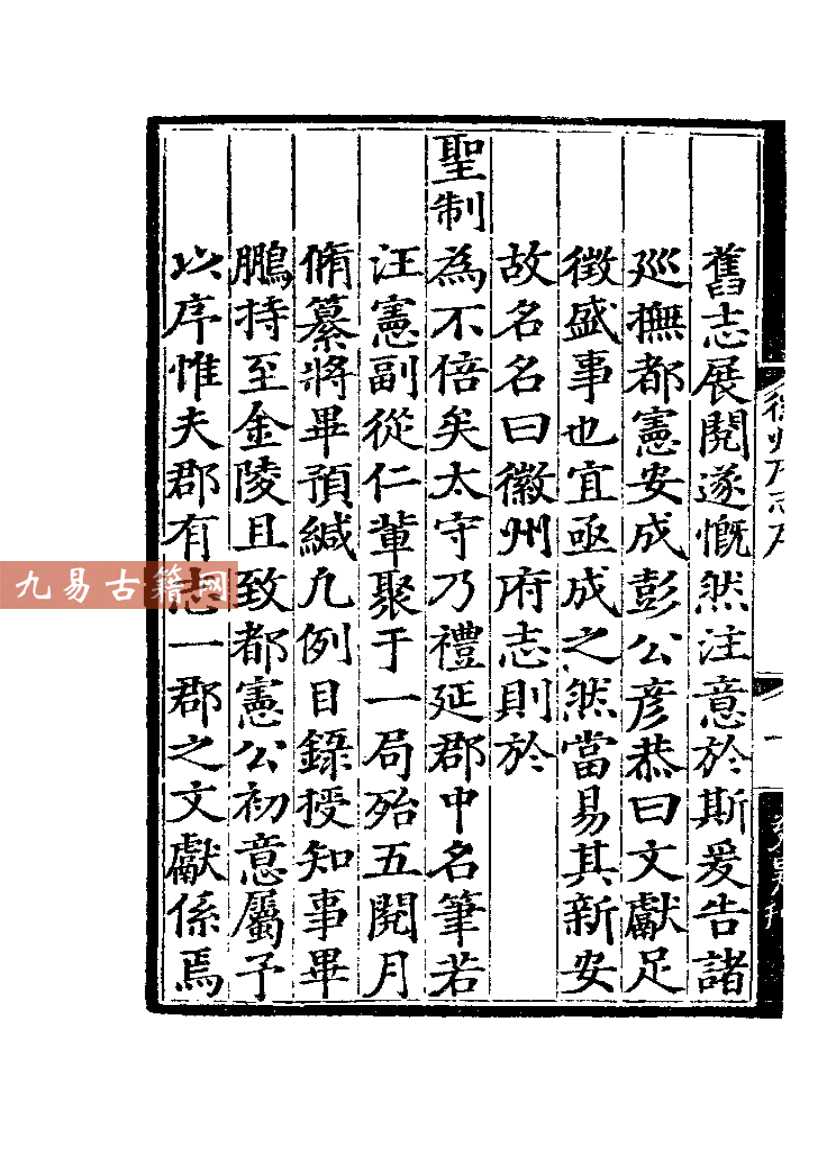 舊志展閱遂慨然注意於斯爰告諸
廵撫都憲安成彭公彥恭曰文獻足
徴盛事也宜亟成之然當易其新安
故名名曰徽州府志則於
聖制為不倍矣太守乃禮延郡中名筆若
汪憲副從仁輩聚于一局殆五閱月
脩纂將畢預緘凢例目錄授知事畢
鵬持至金陵且致都憲公初意屬予
以序惟夫郡有志一郡之文獻係焉
九易古籍网